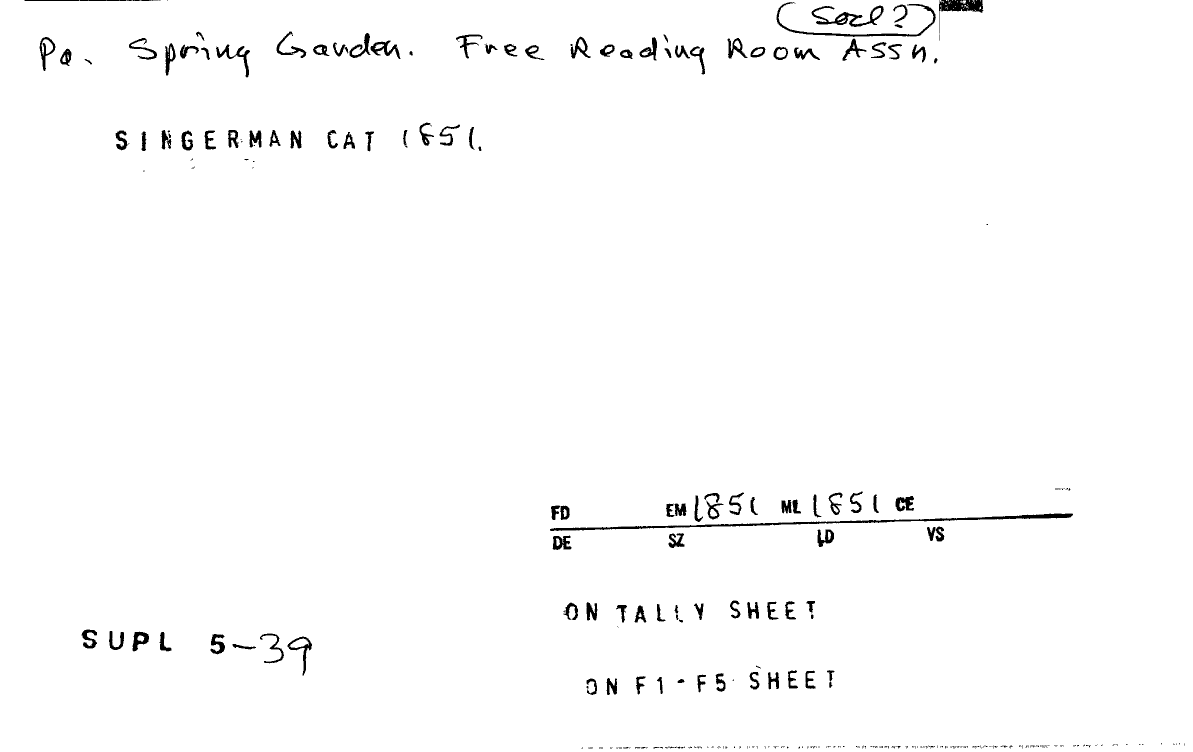 (Socl?)
Pa. Spring Garden. Free Reading Room Assn.
SINGERMAN CAT 1851.
FD EM 1851 ML 1851 CE
DE SZ LD VS
ON TALLY SHEET
SUPL 5-39
ON F1-F5 SHEET